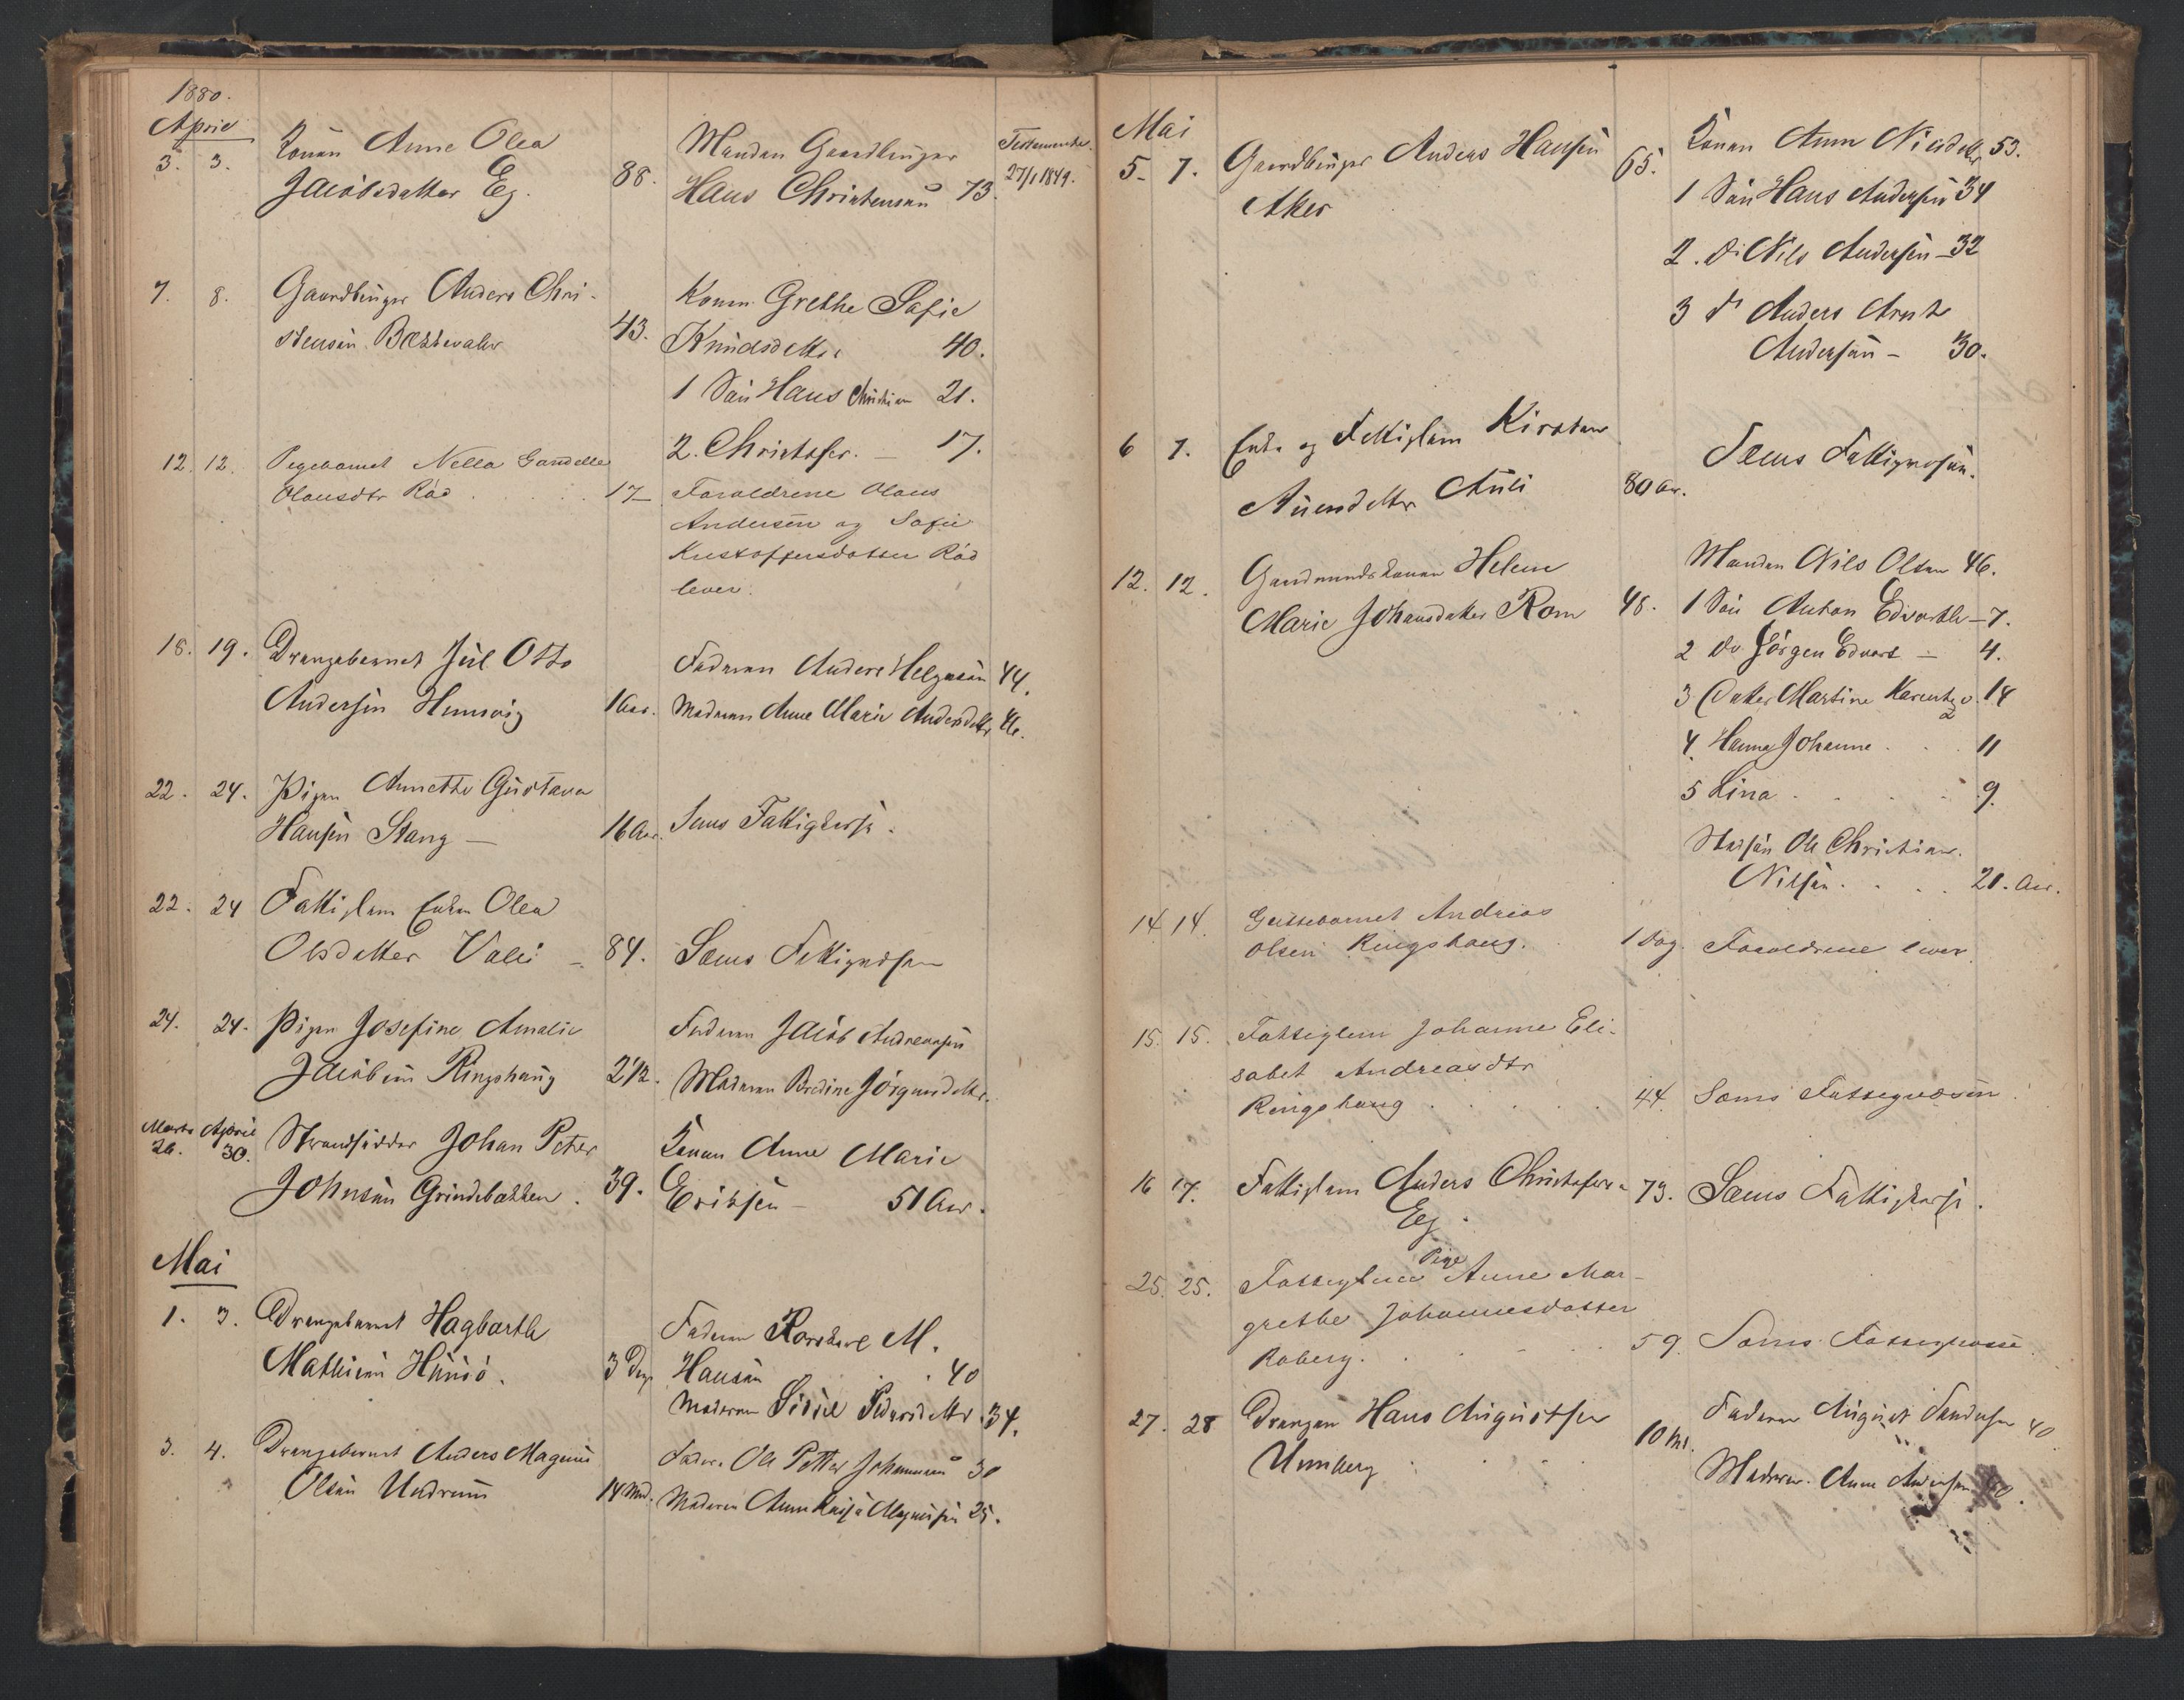 1880.
April
3. 3. Konen Anne Olea
Jacobsdatter Eg. 88.
Manden Gaardbruger
Hans Christensen 73.
Testamente.
27/1 1849.
7. 8. Gaardbruger Anders Chri-
stensen Bækkevaler 43.
Konen Grethe Sofie
Knudsdatter 40.
1 Søn Hans Christian 21.
2. Christofer. — 17.
12. 12. Pigebarnet Nella
Olausdtr Råd 17
Forældrene Olaus
Andersen og Sofie
Kristoffersdatter Råd
lever.
18. 19. Drengebarnet Jul Otto
Andersen 1 Aar.
Faderen Anders Helgesen 44.
Moderen Anne Marie Andersdtr
22. 24. Pigen Annette Gustava
Hansen Stang — 16 Aar.
Sems Fattigkasse.
22. 24 Fattiglem Enken Olea
Olsdatter Valei — 84.
Sæms Fattigvæsen
24. 24. Pigen Josefine Amalie
Jacobsen Ringshaug 2 1/2.
Faderen Jacob Andreassen
Moderen Bredine Jörgensdtr.
Marts April
26. 30. Strandsidder Johan Peter
Johnsen Grindebakken. 39.
Konen Anne Marie
Eriksen — 51 Aar.
Mai
1. 3. Drengebarnet Hagbarth
Mathisen Husö. 3 Dage
Faderen M.
Hansen 40
Moderen Sissel 34.
3. 4. Drengebarnet Anders Magnus
Olsen Undrum 14 Mnd.
Faderen Ole Petter Johannesen 30
Moderen Anne Kaisa Magnusen 25.
Mai
5. 7. Gaardbruger Anders Hansen
Aker 65.
Konen Anne Nilsdatter 53.
1 Søn Hans Andersen 34
2. do Nils Andersen — 32
3 do Anders Arnt
Andersen — 30.
6 7. Enke og Fattiglem Kirsten
Auensdatter Auli 80 Aar.
Sems Fattigvæsen.
12. 12. Gaardmandskonen Helene
Marie Johansdatter Rom 48.
Manden Nils Olsen 46.
1 Søn Anton Edvarth — 7.
2 do Jörgen Edvart — 4.
3 Datter Martine 14
4. Hanna Johanne. 11
5 Lina 9.
Stedsøn Ole Christian
Nilsen. 21. Aar.
14. 14. Guttebarnet Andreas
Olsen Ringshaug. 1 Dag.
Forældrene lever.
15. 15. Fattiglem Johanne Eli-
sabet Andreasdtr
Ringshaug 44.
Sems Fattigvæsen
16 17. Fattiglem Anders Christofersen 73.
Eeg.
Sæms Fattigkasse.
25. 25. Fattiglem Pige Anne Mar-
grethe Johannesdatter
Roberg. 59.
Sems Fattigkasse.
27. 28 Drengen Hans Augustsen
Unneberg 10 M.
Faderen August 40
Moderen. Anne Andersen 40.